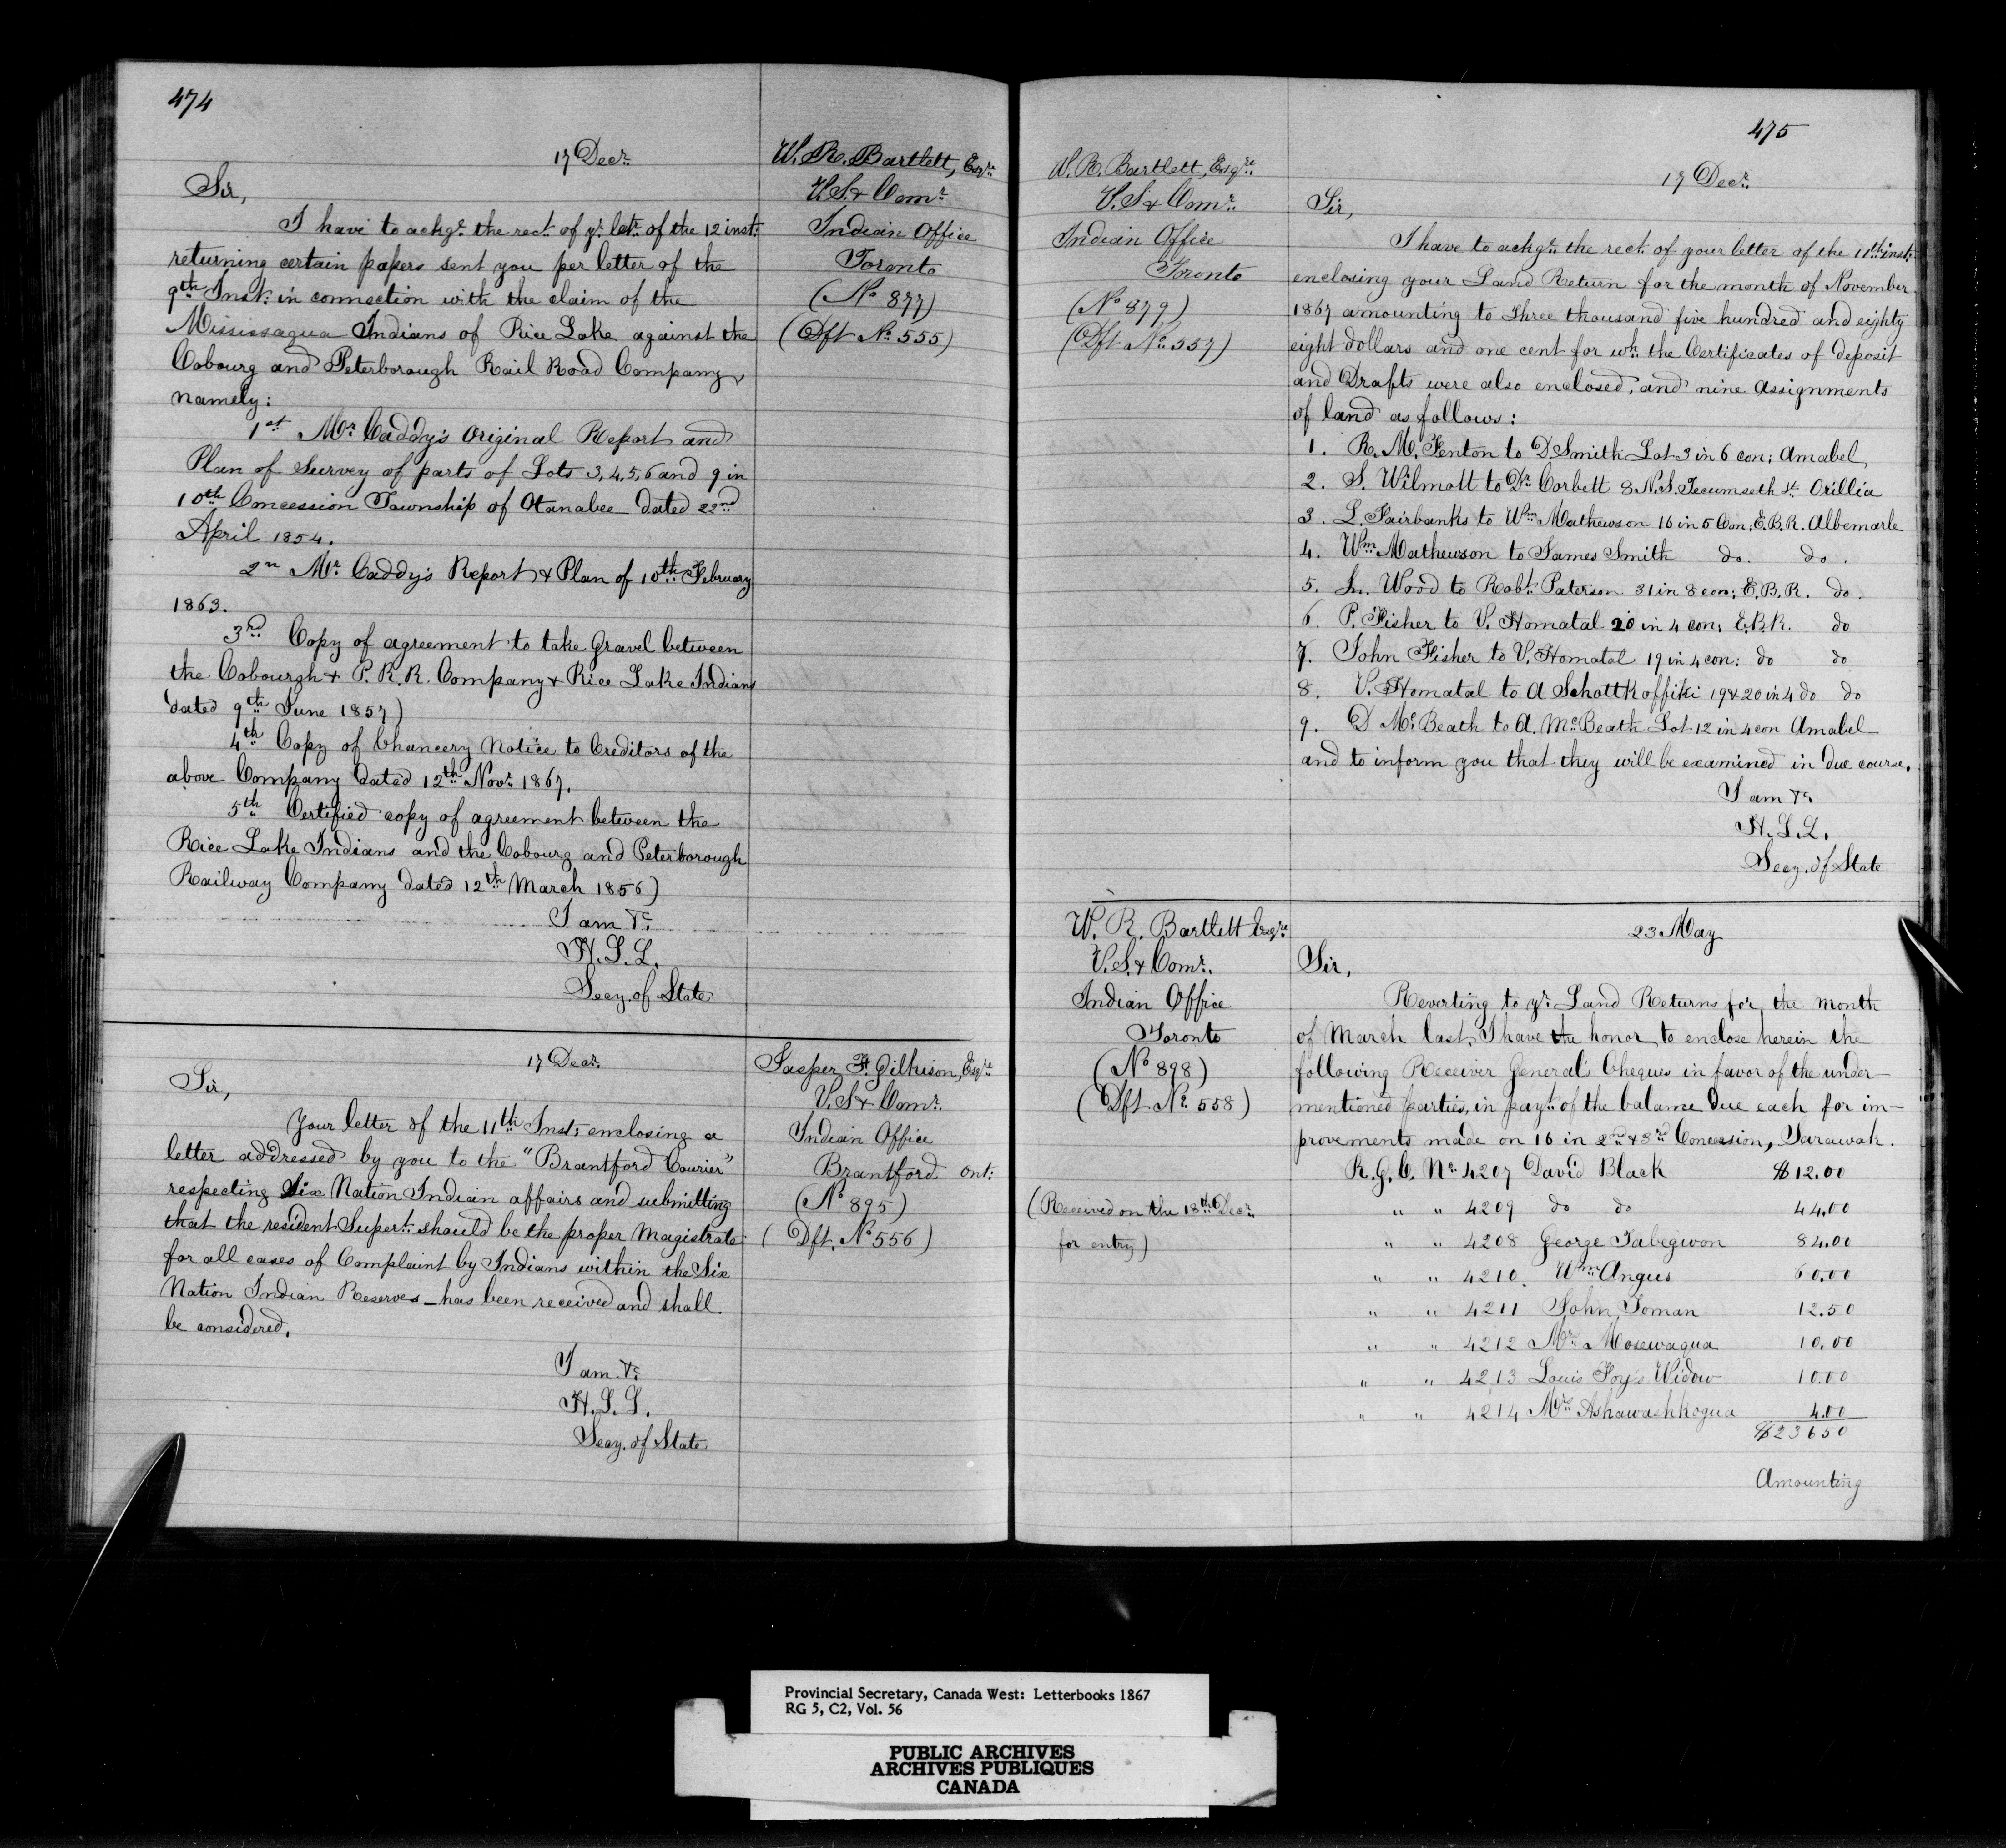 474
17 Decr.
W. R. Bartlett, Esqre.
V. S. & Comr.
Indian Office
Toronto
(No 877)
(Dft No. 555)
Sir,
I have to ackge. the rect. of yr. letr. of the 12 inst:
returning certain papers sent you per letter of the
9th Inst: in connection with the claim of the
Mississagua Indians of Rice Lake against the
Cobourg and Peterborough Rail Road Company,
namely:
1st Mr. Caddy's Original Report and
Plan of Survey of parts of Lots 3, 4, 5, 6 and 9 in
10th Concession Township of Otanabee dated 22nd
April 1854.
2n Mr. Caddy's Report & Plan of 10th February
1863.
3rd Copy of agreement to take Gravel between
the Cobourgh & P. R. R. Company & Rice Lake Indians
dated 9th June 1857)
4th Copy of Chancery Notice to Creditors of the
above Company dated 12th Novr. 1867.
5th Certified copy of agreement between the
Rice Lake Indians and the Cobourg and Peterborough
Railway Company dated 12th March 1856)
I am &c.
H. L. L.
Secy. of State
17 Decr.
Jasper T. Gilkison, Esqre.
V. S. & Comr.
Indian Office
Brantford Ont:
(No 895)
(Dft. No 556)
Sir,
Your letter of the 11th Inst: enclosing a
letter addressed by you to the "Brantford Courier"
respecting Six Nation Indian affairs and submitting
that the resident Supert. should be the proper Magistrate
for all cases of Complaint by Indians within the Six
Nation Indian Reserves - has been received and shall
be considered.
I am &c.
H. L. L.
Secy. of State
475
W. R. Bartlett, Esqre.
V. S & Comr.
Indian Office
Toronto
(No 879)
(Dft No. 557)
17 Decr.
Sir,
I have to ackge. the rect. of your letter of the 11th inst:
enclosing your Land Return for the month of November
1867 amounting to Three thousand five hundred and eighty
eight dollars and one cent for wh. the Certificates of deposit
and Drafts were also enclosed, and nine Assignments
of land as follows:
1. R. M. Fenton to D Smith Lot 3 in 6 con: Amabel
2. S. Wilmott to Dr. Corbett 8 N. S. Tecumseth St. Orillia
3. L. Fairbanks to Wm Mathewson 16 in 5 Con; E. B. R. Albemarle
4. Wm Mathewson to James Smith do. do.
5. Jn. Wood to Robt. Paterson 31 in 8 con; E. B. R. do.
6. P. Fisher to V. Homatal 20 in 4 con; E. B. R. do
7. John Fisher to V. Homatal 19 in 4 con: do do
8. V. Homatal to A Schottkoffiki 19 & 20 in 4 do do
9. D McBeath to A. McBeath Lot 12 in 4 con Amabel
and to inform you that they will be examined in due course.
I am &c.
H. L. L.
Secy. of State
W. R. Bartlett Esqre
V. S. & Comr.
Indian Office
Toronto
(No 898)
(Dft. No. 558)
(Received on the 18th Decr.
for entry)
23 May
Sir,
Reverting to yr. Land Returns for the month
of March last, I have the honor to enclose herein the
following Receiver General's Cheques in favor of the under-
mentioned parties, in payt. of the balance due each for im-
provements made on 16 in 2nd & 3rd Concession, Sarawak.
R. G. C. No. 4207 David Black $12.00
" " 4209 do do 44.00
" " 4208 George Tabegwon 84.00
" " 4210. Wm Angus 60.00
" " 4211 John Toman 12.50
" " 4212 Mrs. Mosewaqua 10.00
" " 4213 Louis Foy's Widow 10.00
" " 4214 Mrs. Ashawashkogua 4.00
$23650
Amounting
Provincial Secretary, Canada West: Letterbooks 1867
RG 5, C2, Vol. 56
PUBLIC ARCHIVES
ARCHIVES PUBLIQUES
CANADA